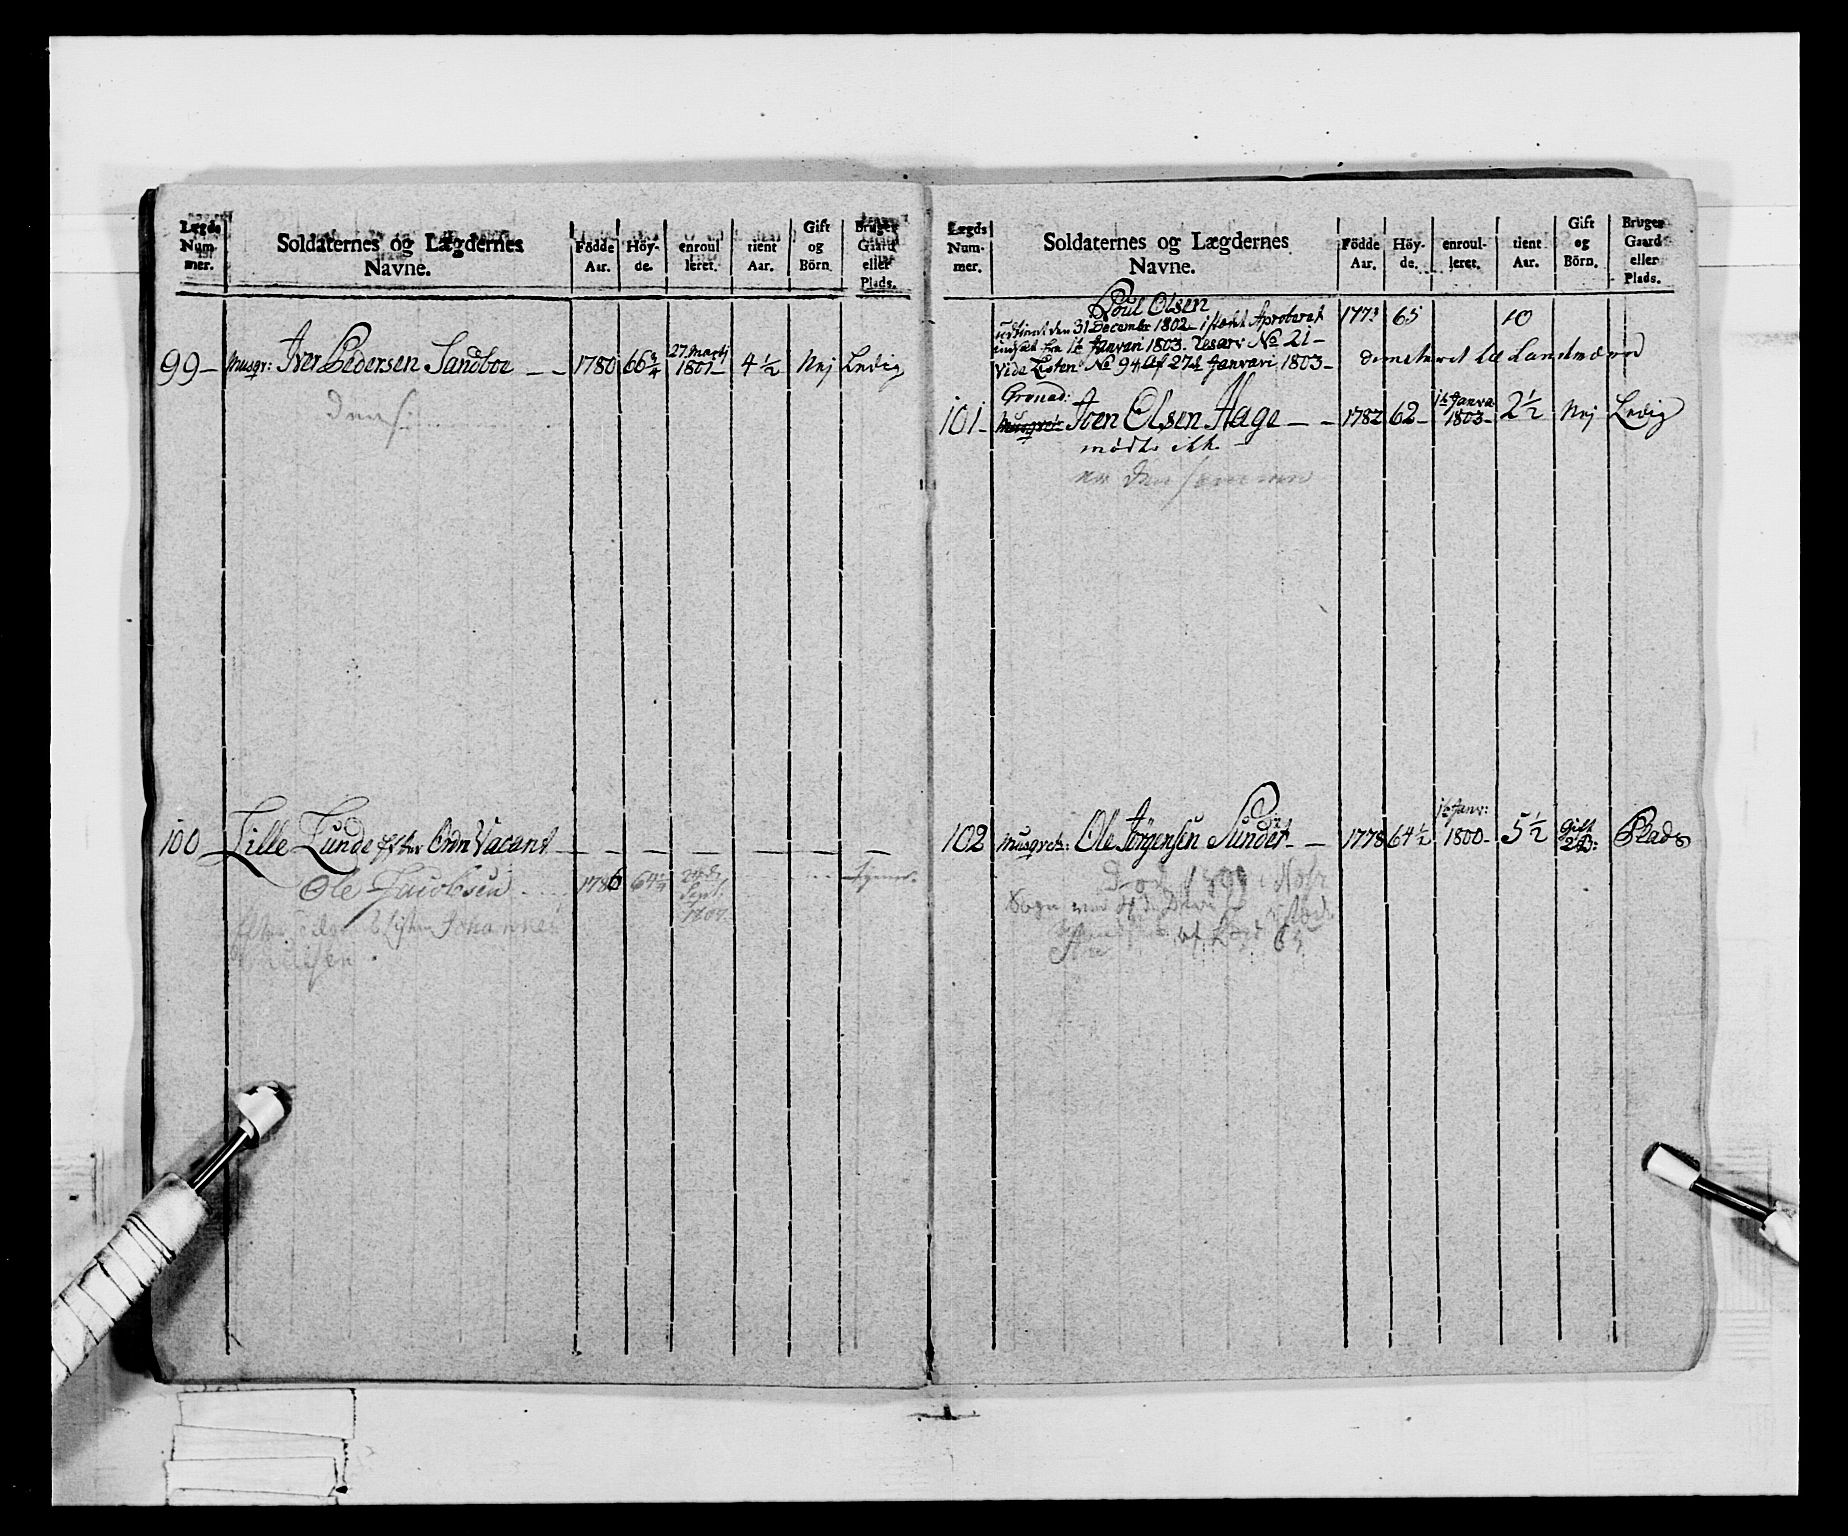 Lægds Num- mer.
Soldaternes og Lægdernes Navne.
Födde Aar.
Höy- de.
enroul leret.
tient Aar.
Gift og Börn.
Bruger Gaard eller Plads.
99 - Musqr: Iver Pedersen Sandboe - - 1780 66 3/4 27. Martj 1801 - 4 1/2 Nej Ledig
100 Lille Lunde Ordn Vacant
Ole Jacobsen 1786 64 1/4 Sept. 1807
Johannes
Lægds Num- mer.
Soldaternes og Lægdernes Navne.
Födde Aar.
Höy- de.
enroul- leret.
tient Aar.
Gift og Börn.
Bruger Gaard eller Plads.
Poul Olsen 1773 65 10
den 31 Decembr 1802 - i stæd Aproberet
fra 1te Januari 1803. Resarv No 21 -
Vide Listen No 94 Af 27de Januari 1803 -
Grenad:
101 - Musqvetr Iven Olsen Hage - - 1782 62 - 1te Janva 1803 - 2 1/2 Nej Ledig
mødte ikke
er den samme
102 Musqvetr: Ole Jörgensen Sundet - - 1778 64 1/2 1te Janv: 1800 - 5 1/2 Gift 2 B: Plads